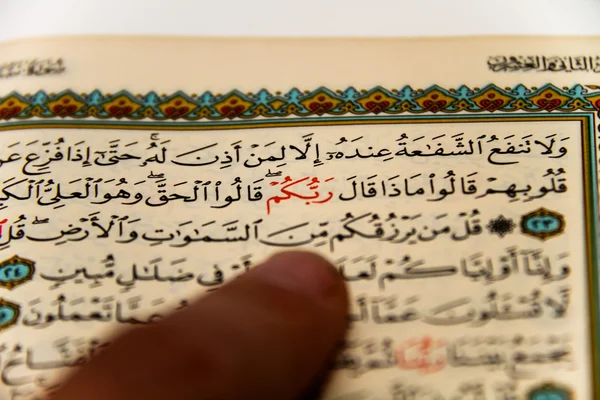 الثاني والعشرون سورة سبإ
وَلَا تَنفَعُ ٱلشَّفَـٰعَةُ عِندَهُۥٓ إِلَّا لِمَنْ أَذِنَ لَهُۥ ۚ حَتَّىٰٓ إِذَا فُزِّعَ عَن
قُلُوبِهِمْ قَالُوا۟ مَاذَا قَالَ رَبُّكُمْ ۖ قَالُوا۟ ٱلْحَقَّ ۖ وَهُوَ ٱلْعَلِىُّ ٱلْكَبِ
٢٣ ۞ قُلْ مَن يَرْزُقُكُم مِّنَ ٱلسَّمَـٰوَٰتِ وَٱلْأَرْضِ ۖ قُلِ
وَإِنَّآ أَوْ إِيَّاكُمْ لَعَلَ أَوْ فِى ضَلَـٰلٍ مُّبِينٍ ٢٤
لَّا تُسْـَٔلُونَ عَمَّآ أَ عَمَّا تَعْمَلُونَ
يَجْمَعُ بَيْنَنَا رَبُّنَا ثُمَّ